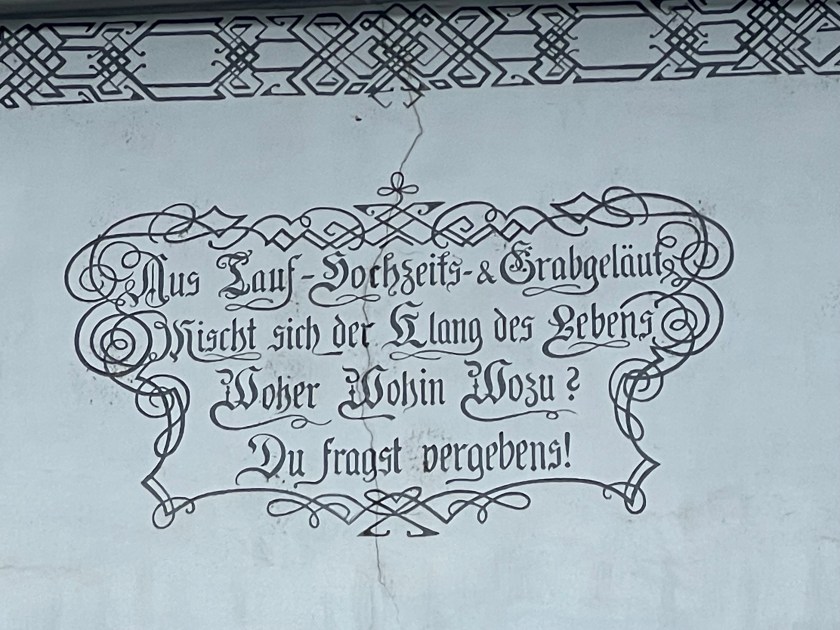 Aus Tauf-Hochzeits-& Grabgeläut
Mischt sich der Klang des Lebens
Woher Wohin Wozu?
Du fragst vergebens!